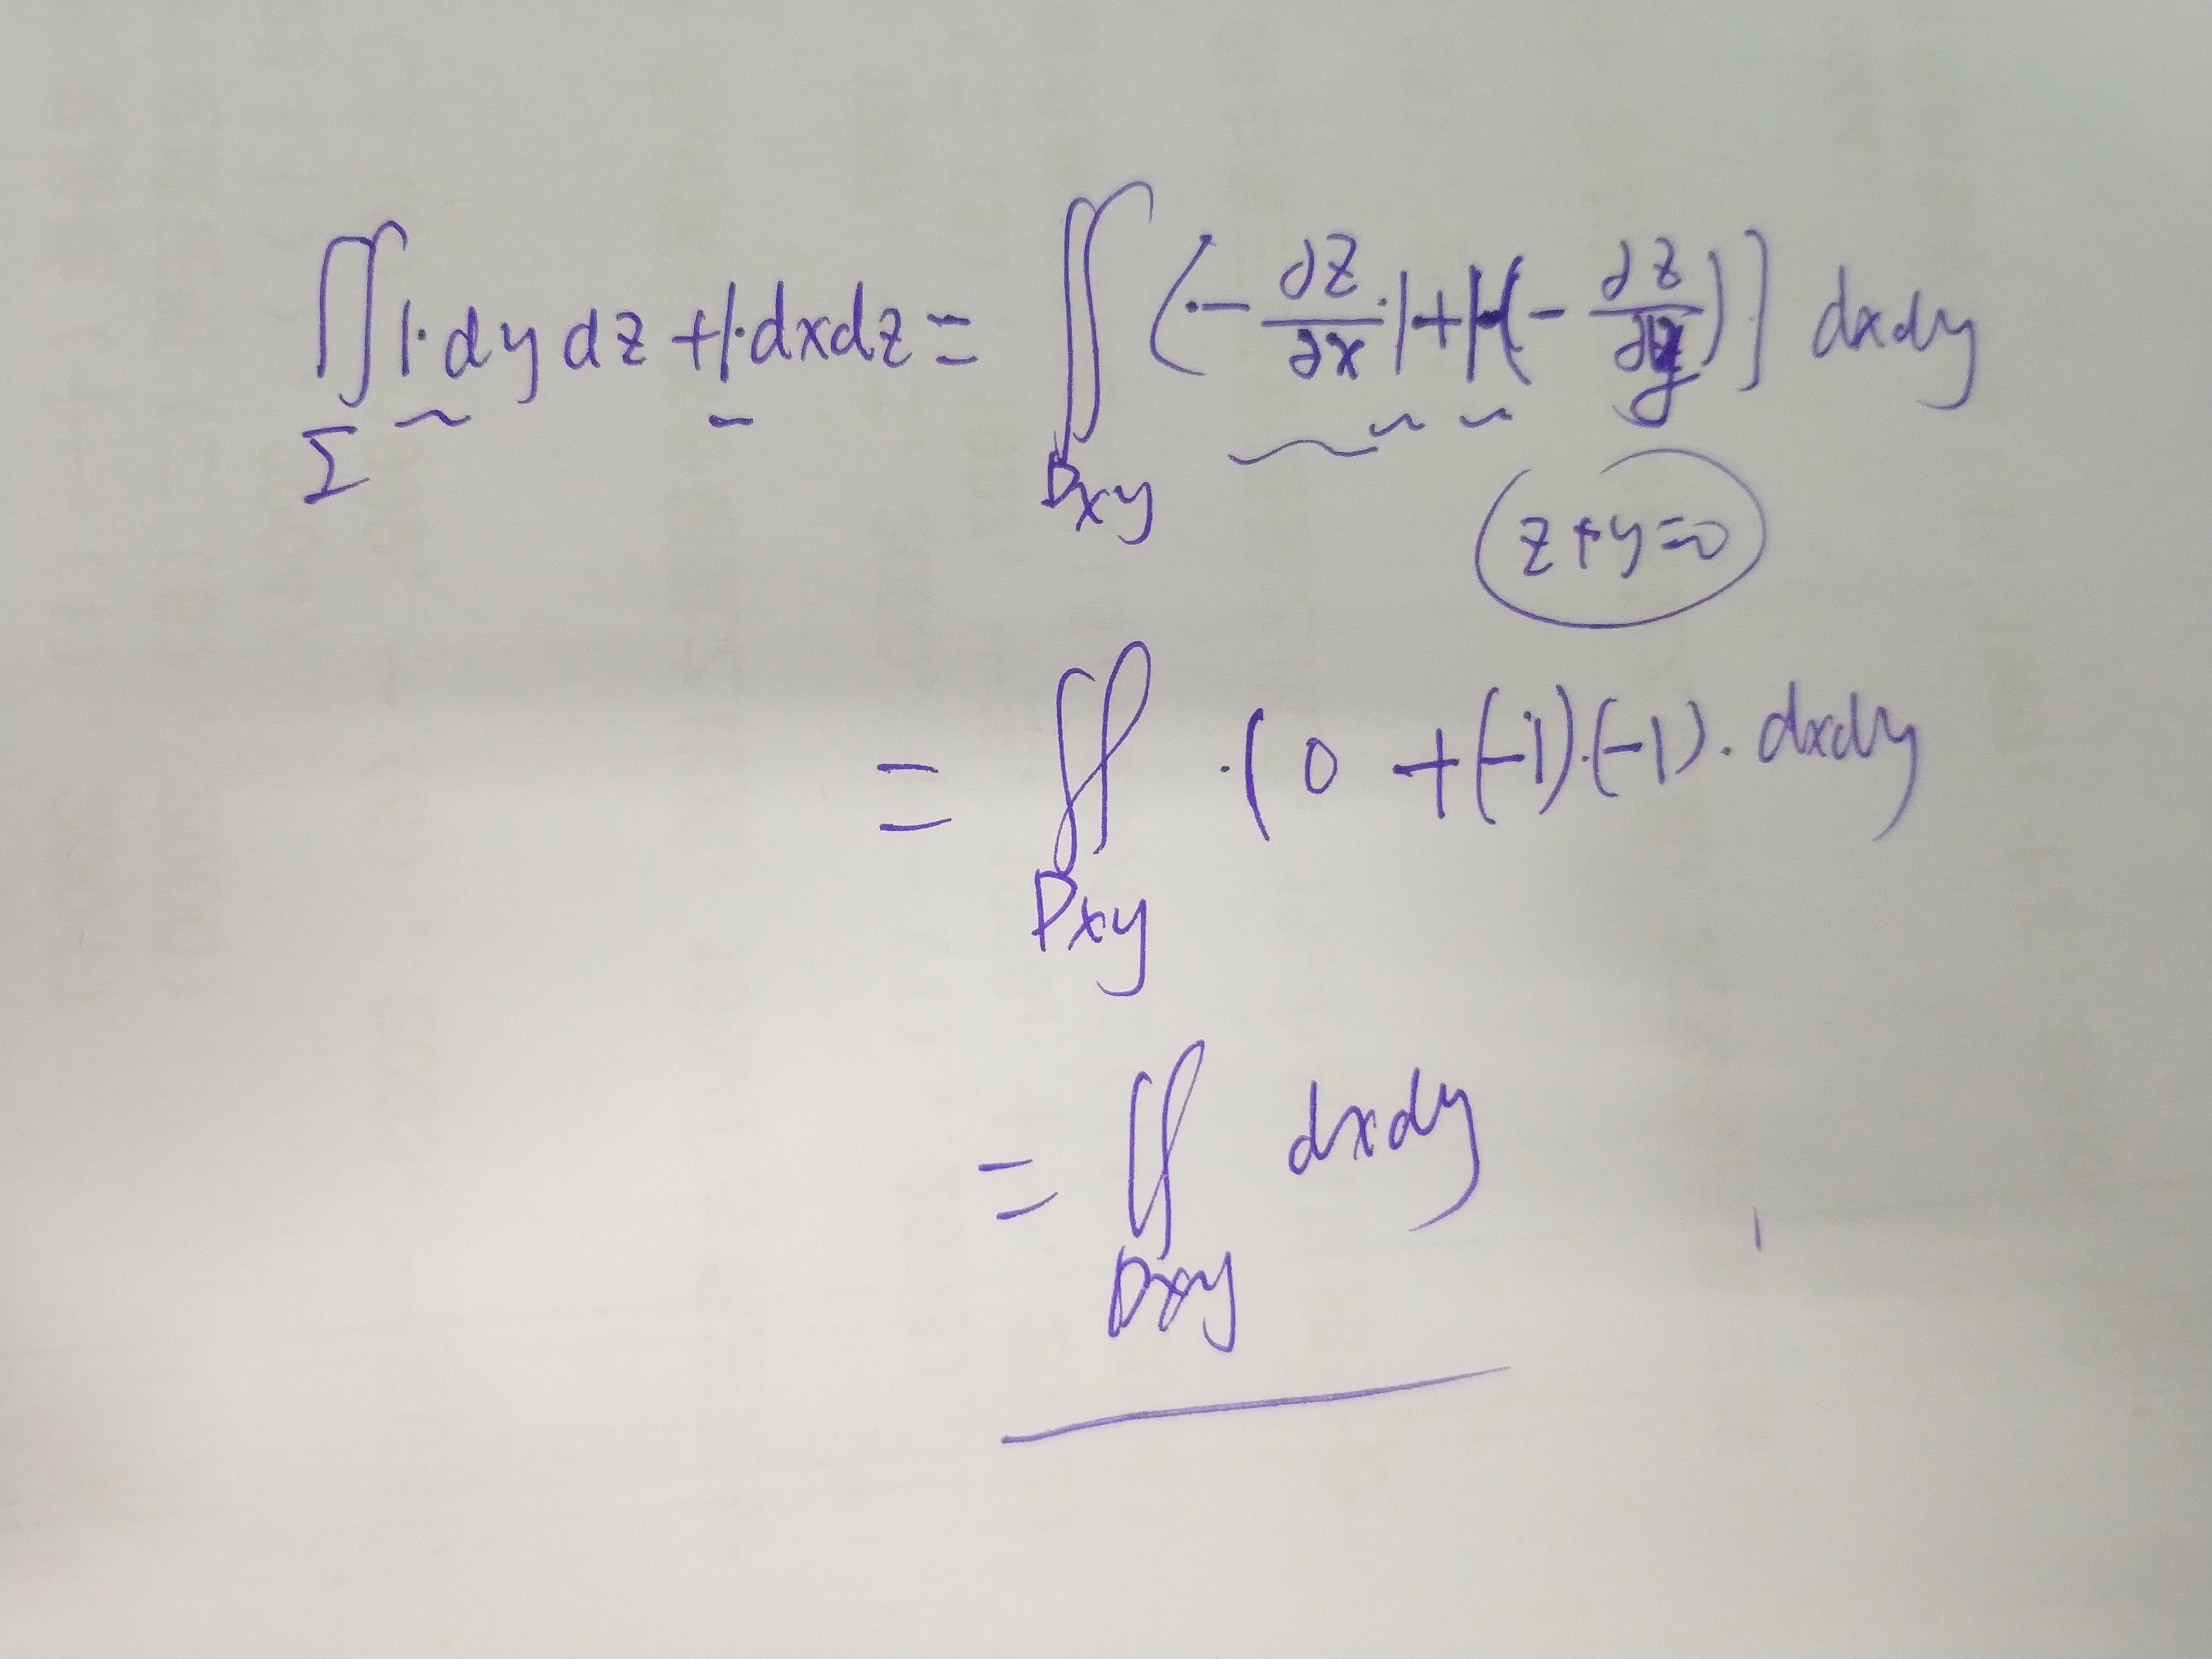 ∬_Σ 1·dydz + 1·dxdz = ∬_Dxy (·-∂z/∂x·1+1·(-∂z/∂y)] dxdy
z+y=0
= ∬_Dxy ·(0 +(-1)·(-1)· dxdy
= ∬_Dxy dxdy